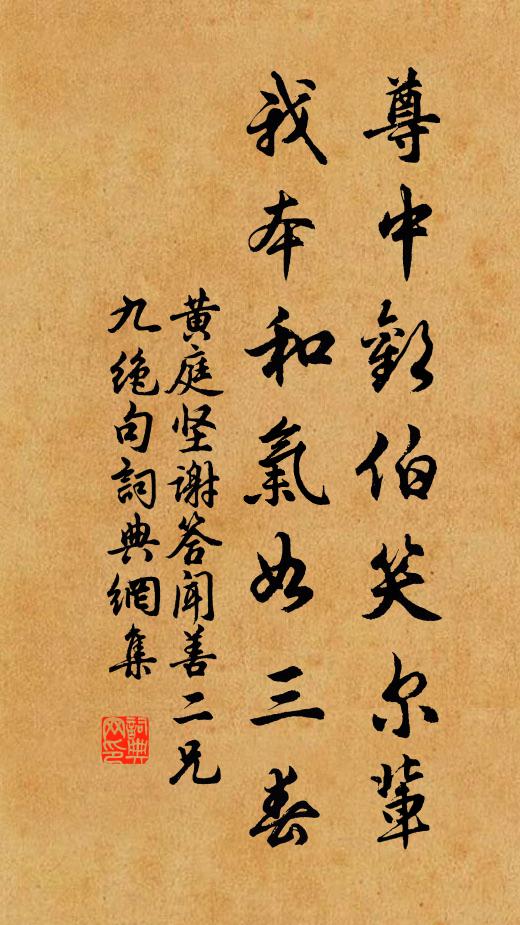 尊中歡伯笑尔輩
我本和氣如三春
黄庭坚谢答闻善二兄
九绝句詞典網集
詞典網印